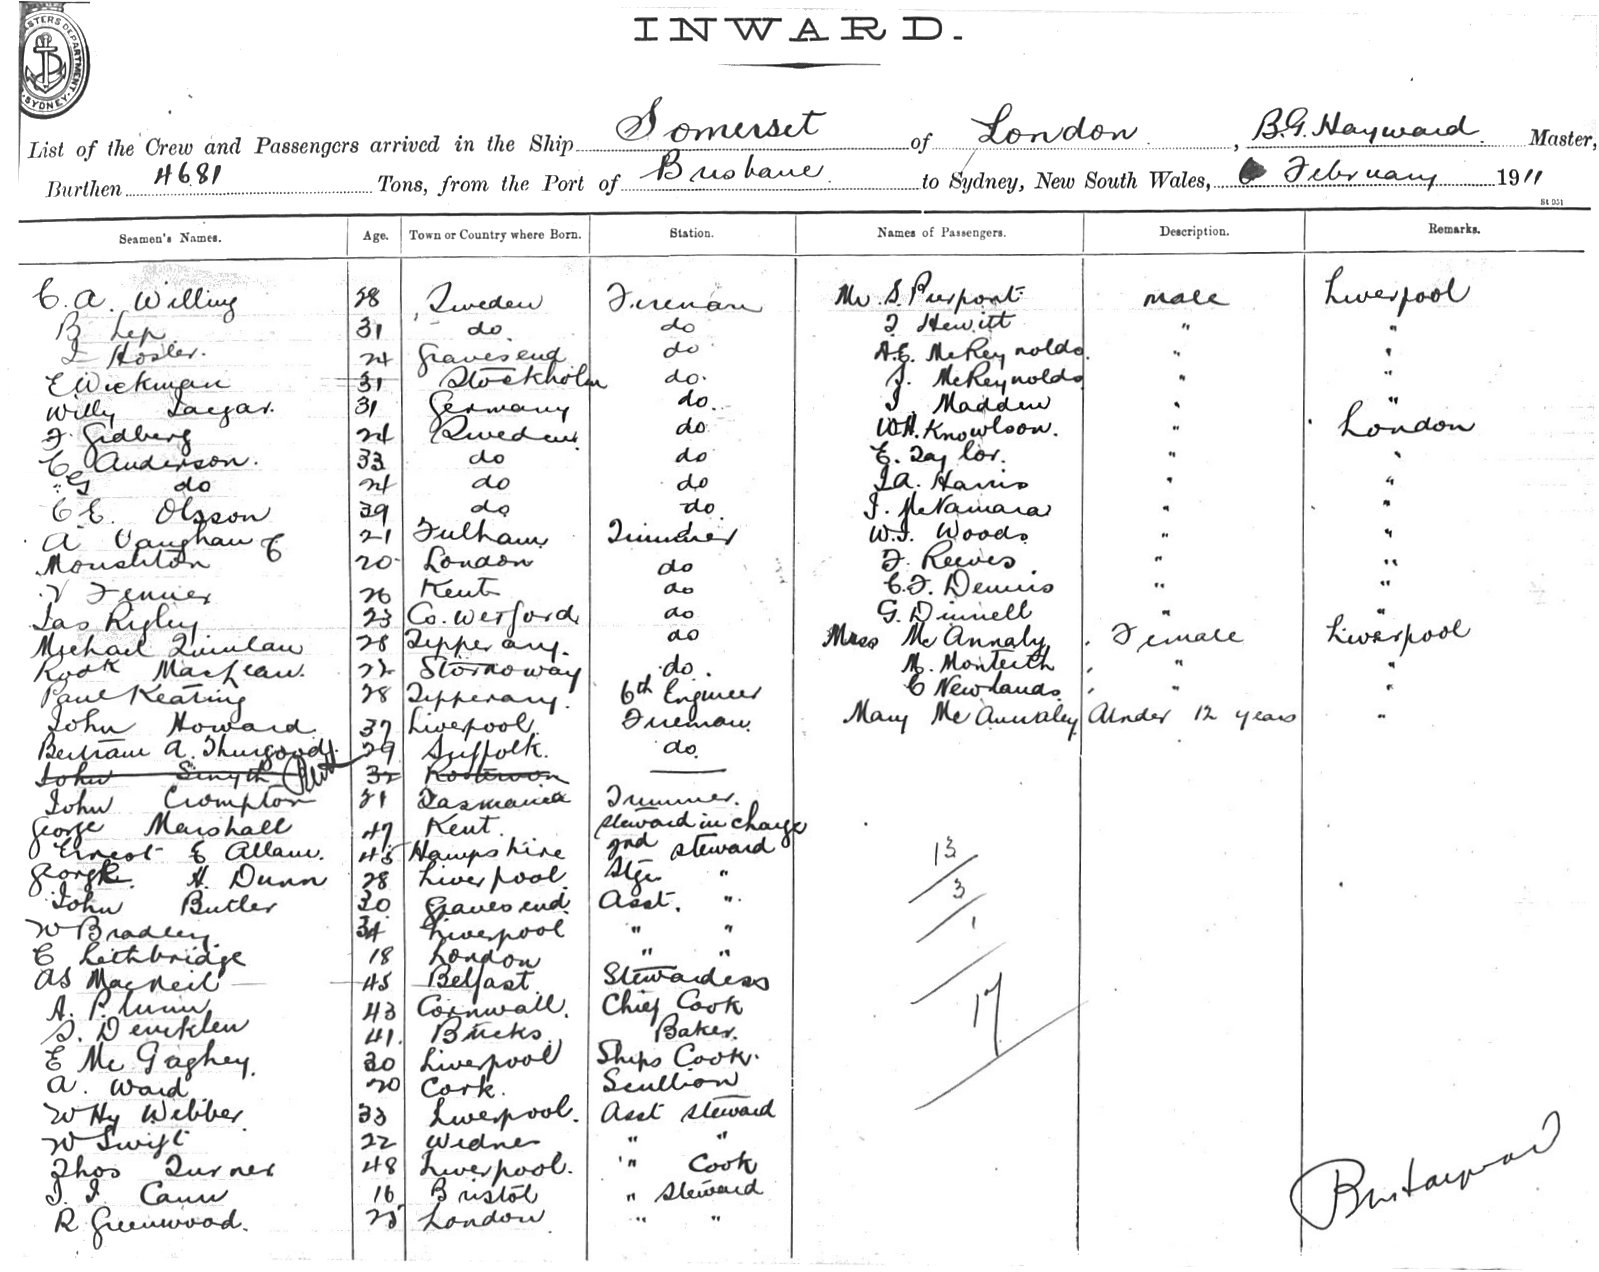 MASTERS DEPARTMENT
SYDNEY
INWARD.
List of the Crew and Passengers arrived in the Ship Somerset of London, B.G. Hayward Master,
Burthen 4681 Tons, from the Port of Brisbane to Sydney, New South Wales, 6 February 1911
St 051
Seamen's Names. Age. Town or Country where Born. Station. Names of Passengers. Description. Remarks.
C. A. Willing 28 Sweden Fireman Mr. S. Pierpont male Liverpool
B Lep 31 do do J Hewitt " "
I Hosler. 24 Gravesend do A.E. McReynolds " "
E Wickman 31 Stockholm do. J. McReynolds " "
Willy Jaegar. 31 Germany do. J. Madden " "
F. Gidberg 24 Sweden do W.H. Knowlson. " London
C Anderson. 33 do do E. Taylor. " "
" G do 24 do do J.A. Harris " "
C E. Olsson 39 do do. J. McNamara " "
A Vaughan C 21 Fulham Trimmer W.J. Woods " "
Moughton 20 London do F. Reeves " "
V Fenner 26 Kent do C.F. Dennis " "
Jas Rigley 23 Co. Wexford do G. Dinnell " "
Michael Quinlan 28 Tipperary. do Miss McAnnaly Female Liverpool
Rodk MacLean. 22 Stornoway do. M. Monteith " "
Paul Keating 28 Tipperary. 6th Engineer C Newlands. " "
John Howard 37 Liverpool Fireman. Mary McAnnaley Under 12 years "
Bertram A. Thurgood 29 Suffolk. do.
John Smyth 32
John Crompton 21 Tasmania Trimmer.
George Marshall 47 Kent. Steward in charge
Ernest E Allam. 45 Hampshire 2nd steward 13
George H. Dunn 28 Liverpool Stge " 3
John Butler 30 Gravesend. Asst. "
W Bradley 34 Liverpool " " 1
C Lethbridge 18 London " "
AS MacNeil 45 Belfast Stewardess
A. Plumm 43 Cornwall. Chief Cook 17
S. Dencklen 41. Bucks. Baker.
E McGaghey. 30 Liverpool Ships Cook.
A. Ward 20 Cork. Scullion
W Hy Webber 33 Liverpool. Asst steward
W Swift 22 Widnes " "
Thos Turner 48 Liverpool. " Cook
J. J. Cann 16 Bristol " Steward
R. Greenwood. 25 London " "